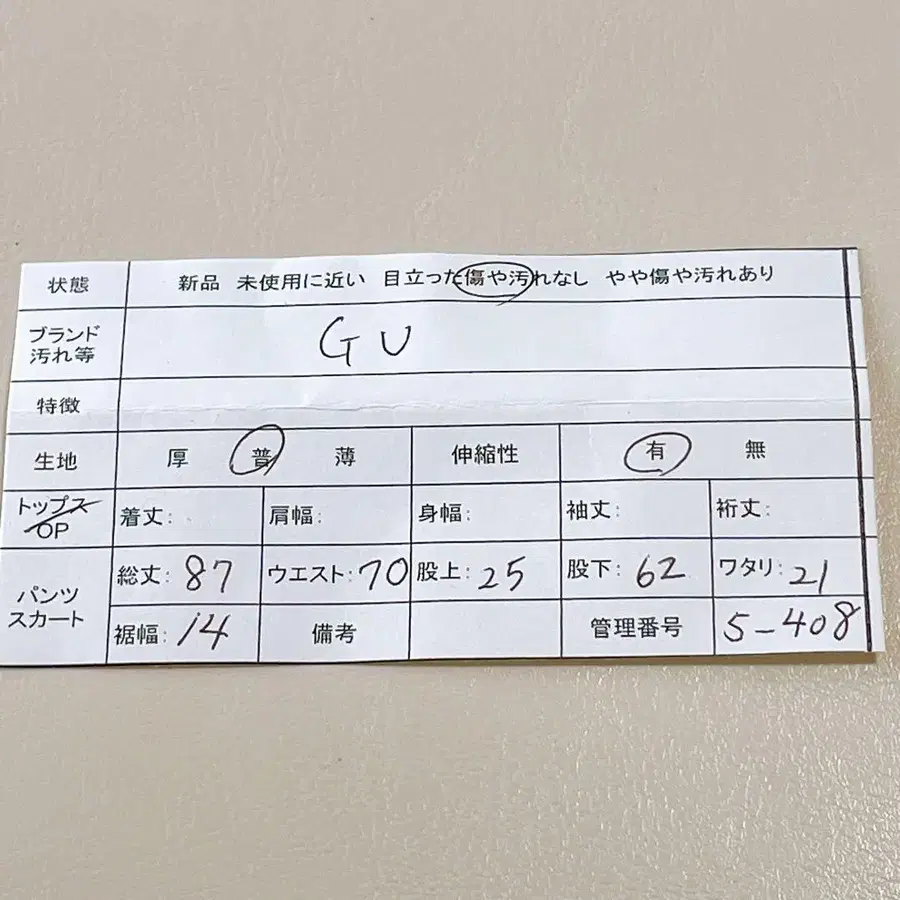 状態 新品 未使用に近い 目立った傷や汚れなし やや傷や汚れあり
ブランド
汚れ等 GU
特徴
生地 厚 普 薄 伸縮性 有 無
トップス
OP 着丈: 肩幅: 身幅: 袖丈: 裄丈:
パンツ
スカート 総丈: 87 ウエスト: 70 股上: 25 股下: 62 ワタリ: 21
裾幅: 14 備考 管理番号 5-408